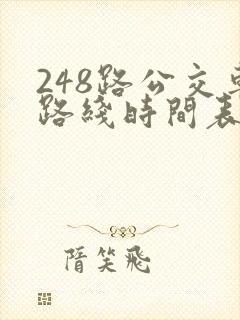 248路公交車
路綫時間表
隋笑飛